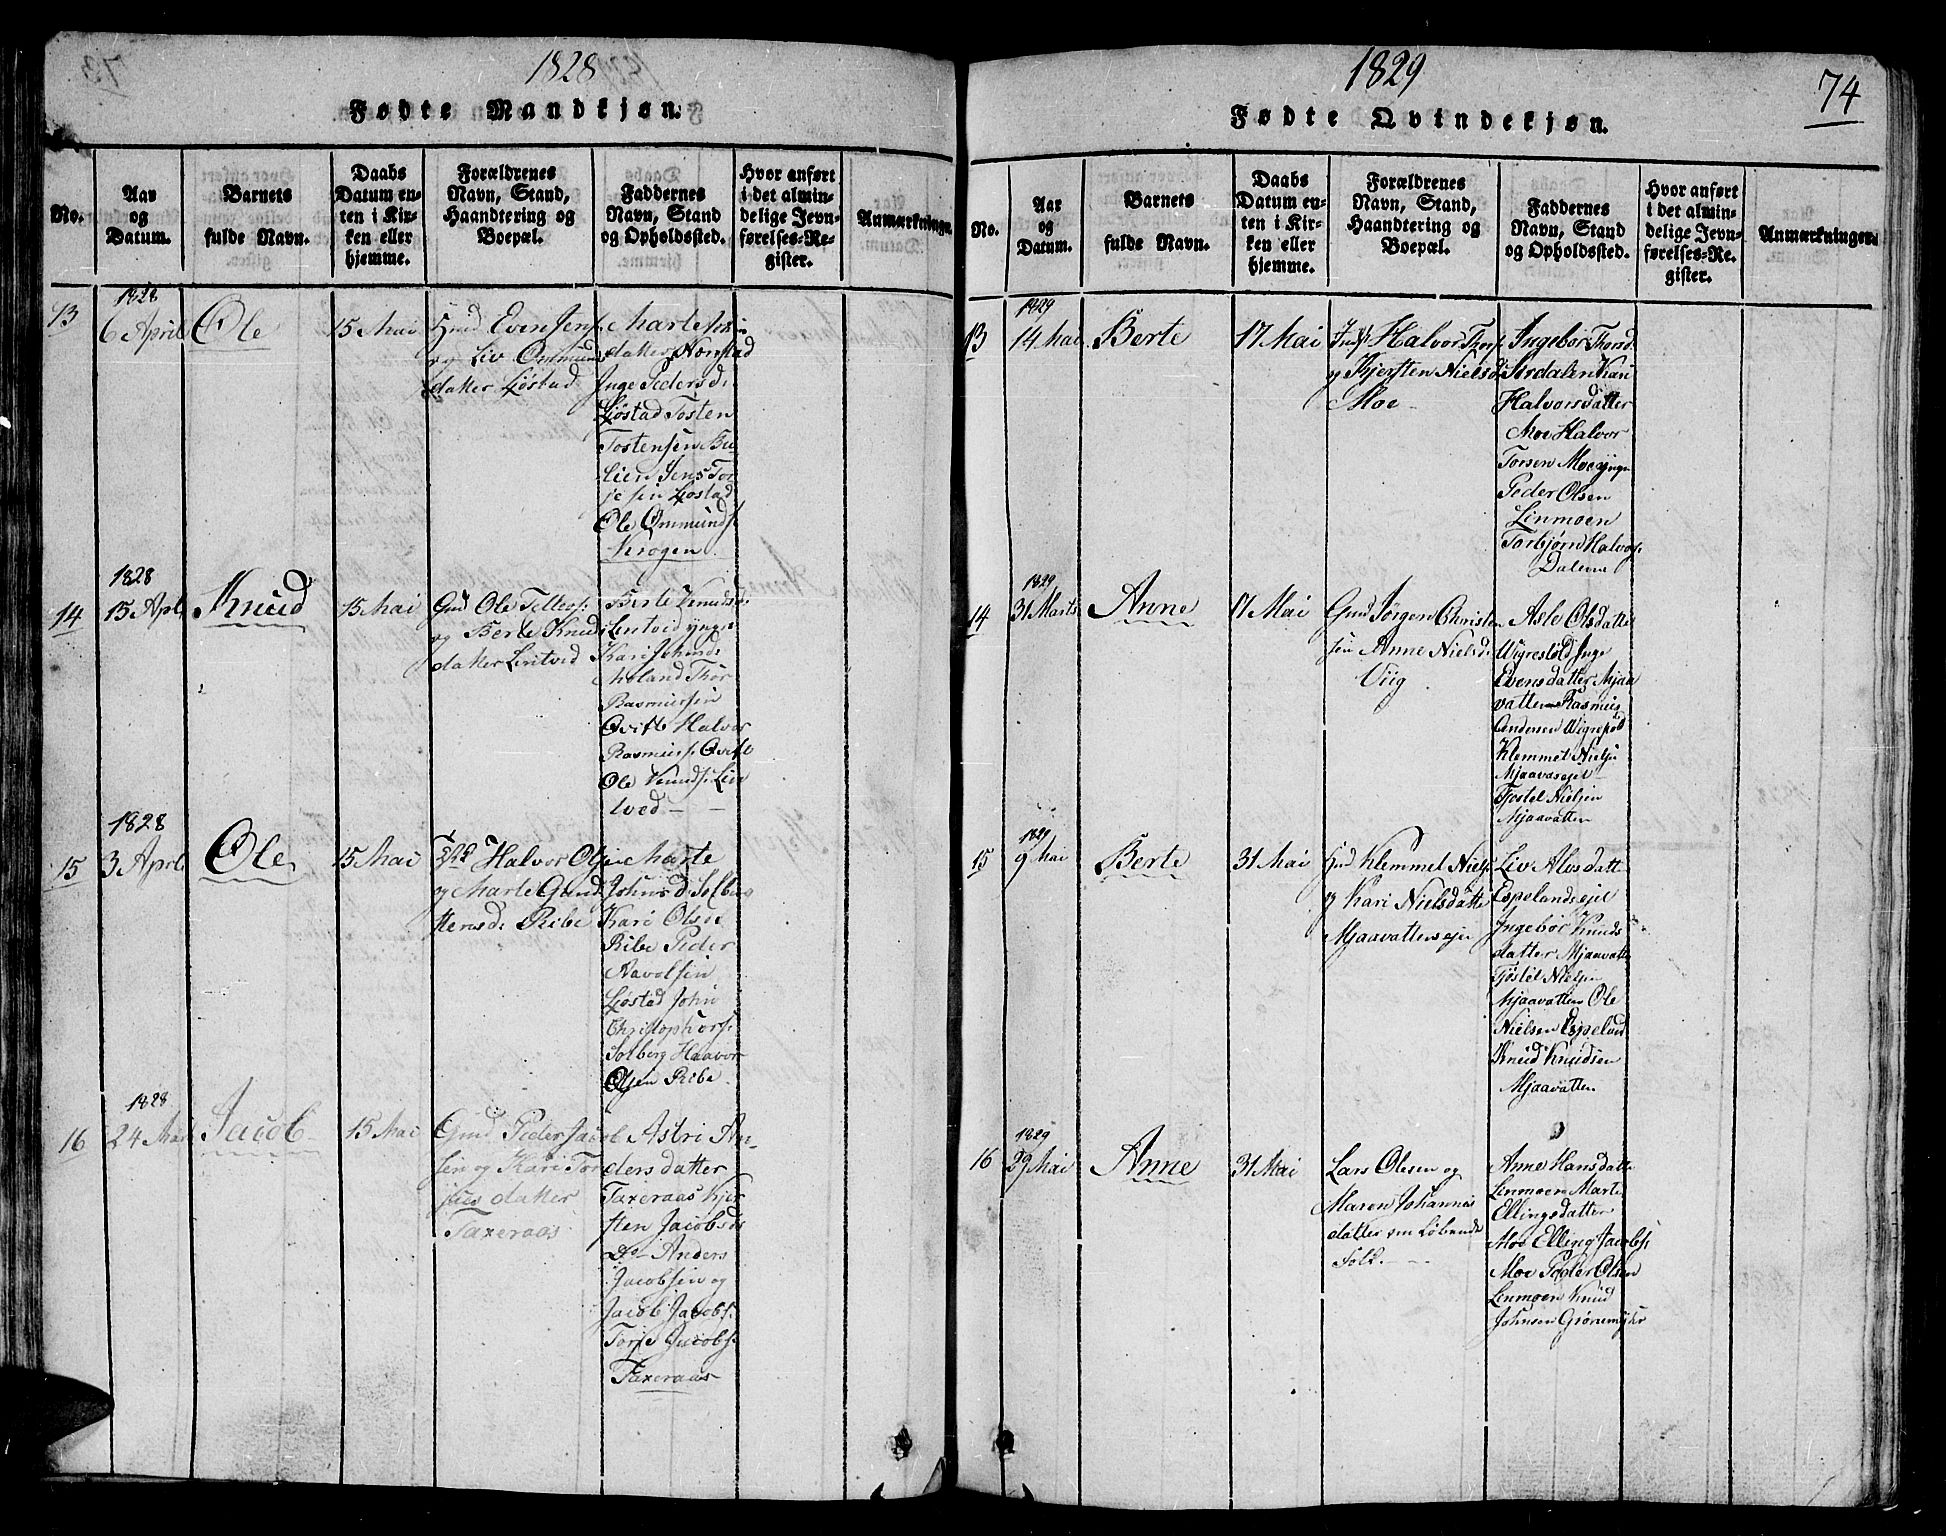 1828
Fødte Mandkjøn.
No.
Aar
og
Datum.
Barnets
fulde Navn.
Daabs
Datum en-
ten i Kir-
ken eller
hjemme.
Forældrenes
Navn, Stand,
Haandtering og
Boepæl.
Faddernes
Navn, Stand
og Opholdssted.
Hvor anført
i det almin-
delige Jevn-
førelses-Re-
gister.
Anmærkninger.
13
1828
6 April
Ole
15 Mai
Gmd Even Jens
og Liv Ommunds
datter Ljøstad
Marte
datter Nomstad
Inge Peders d:
Ljøstad Tosten
Tostensen Be-
lien Jens Tor
jesen Ljøstad
Ole Ommunds:
Krogen.
14
1828
15 Apl
Knud
15 Mai
Gmd Ole Tellefs:
og Berte Knuds
datter Lintved
Berte Knuds d:
Lintved ynge
Kari Johnsd:
Moland Thor
Rasmussen
Qvifte Halvor
Rasmuss: Qvifte
Ole Knuds: Lin
tved
15
1828
3 April
Ole
15 Mai
Halvor Olsen
og Marte Gund
tersd: Ribe
Marte
Johnsd Solberg
Kari Olsd:
Ribe Peder
Navolsen
Ljøstad John
Christophers:
Solberg Haavor
Olsen Ribe
16
1828
24 Mar
Jacob
15 Mai
Gmd Peder Jacob
sen og Kari Tor
jus datter
Taxeraas
Astri An-
ders datter
Taxeraas Kjer
sten Jacobsd:
Do Anders
Jacobsen og
Jacob Jacobs:
Torje Jacobs:
Taxeraas
1829
74
Fødte Qvindekjøn.
No.
Aar
og
Datum.
Barnets
fulde Navn.
Daabs
Datum en-
ten i Kir-
ken eller
hjemme.
Forældrenes
Navn, Stand,
Haandtering og
Boepæl.
Faddernes
Navn, Stand
og Opholdssted.
Hvor anført
i det almin-
delige Jevn-
førelses-Re-
gister.
Anmærkninger.
13
1829
14 Mai
Berte
17 Mai
Inds Halvor Thors:
og Kjersten Nielsd:
Moe
Ingebor Thord
Sordalen Kari
Halvorsdatter
Moe Halvor
Torsen Moe ynge
Peder Olsen
Linmoen
Torbjørn Halvors:
Dalene
14
1829
31 Marts
Anne
17 Mai
Gmd Jørgen Christen
sen Anne Nielsd:
Viig
Asle Olsdatter
Vigrestøld Inge
Evensdatter Mjaa
vatten Rasmus
Andersen Vigrestøld
Klemmet Nielsen
Mjaavasejet
Tjostel Nielsen
Mjaavatten
15
1829
9 Mai
Berte
31 Mai
Gmd Klemmet Niels:
og Kari Nielsdatter
Mjaavattensejet
Liv Alosdatt
Espelandsejet
Ingebør Knuds
datter Mjaavatten
Tjøstel Nielsen
Mjaavatten Ole
Nielsen Espelund
Knud Knudsen
Mjaavatten
16
1829
29 Mai
Anne
31 Mai
Lars Olesen og
Maren Johannis
datter om Løbende
Folk.
Anne Hansdatter
Linmoen Marte
Ellingsdatter
Moe Elling Jacobs:
Moe Peder Olsen
Linmoen Knud
Johnsen Grønemyhr